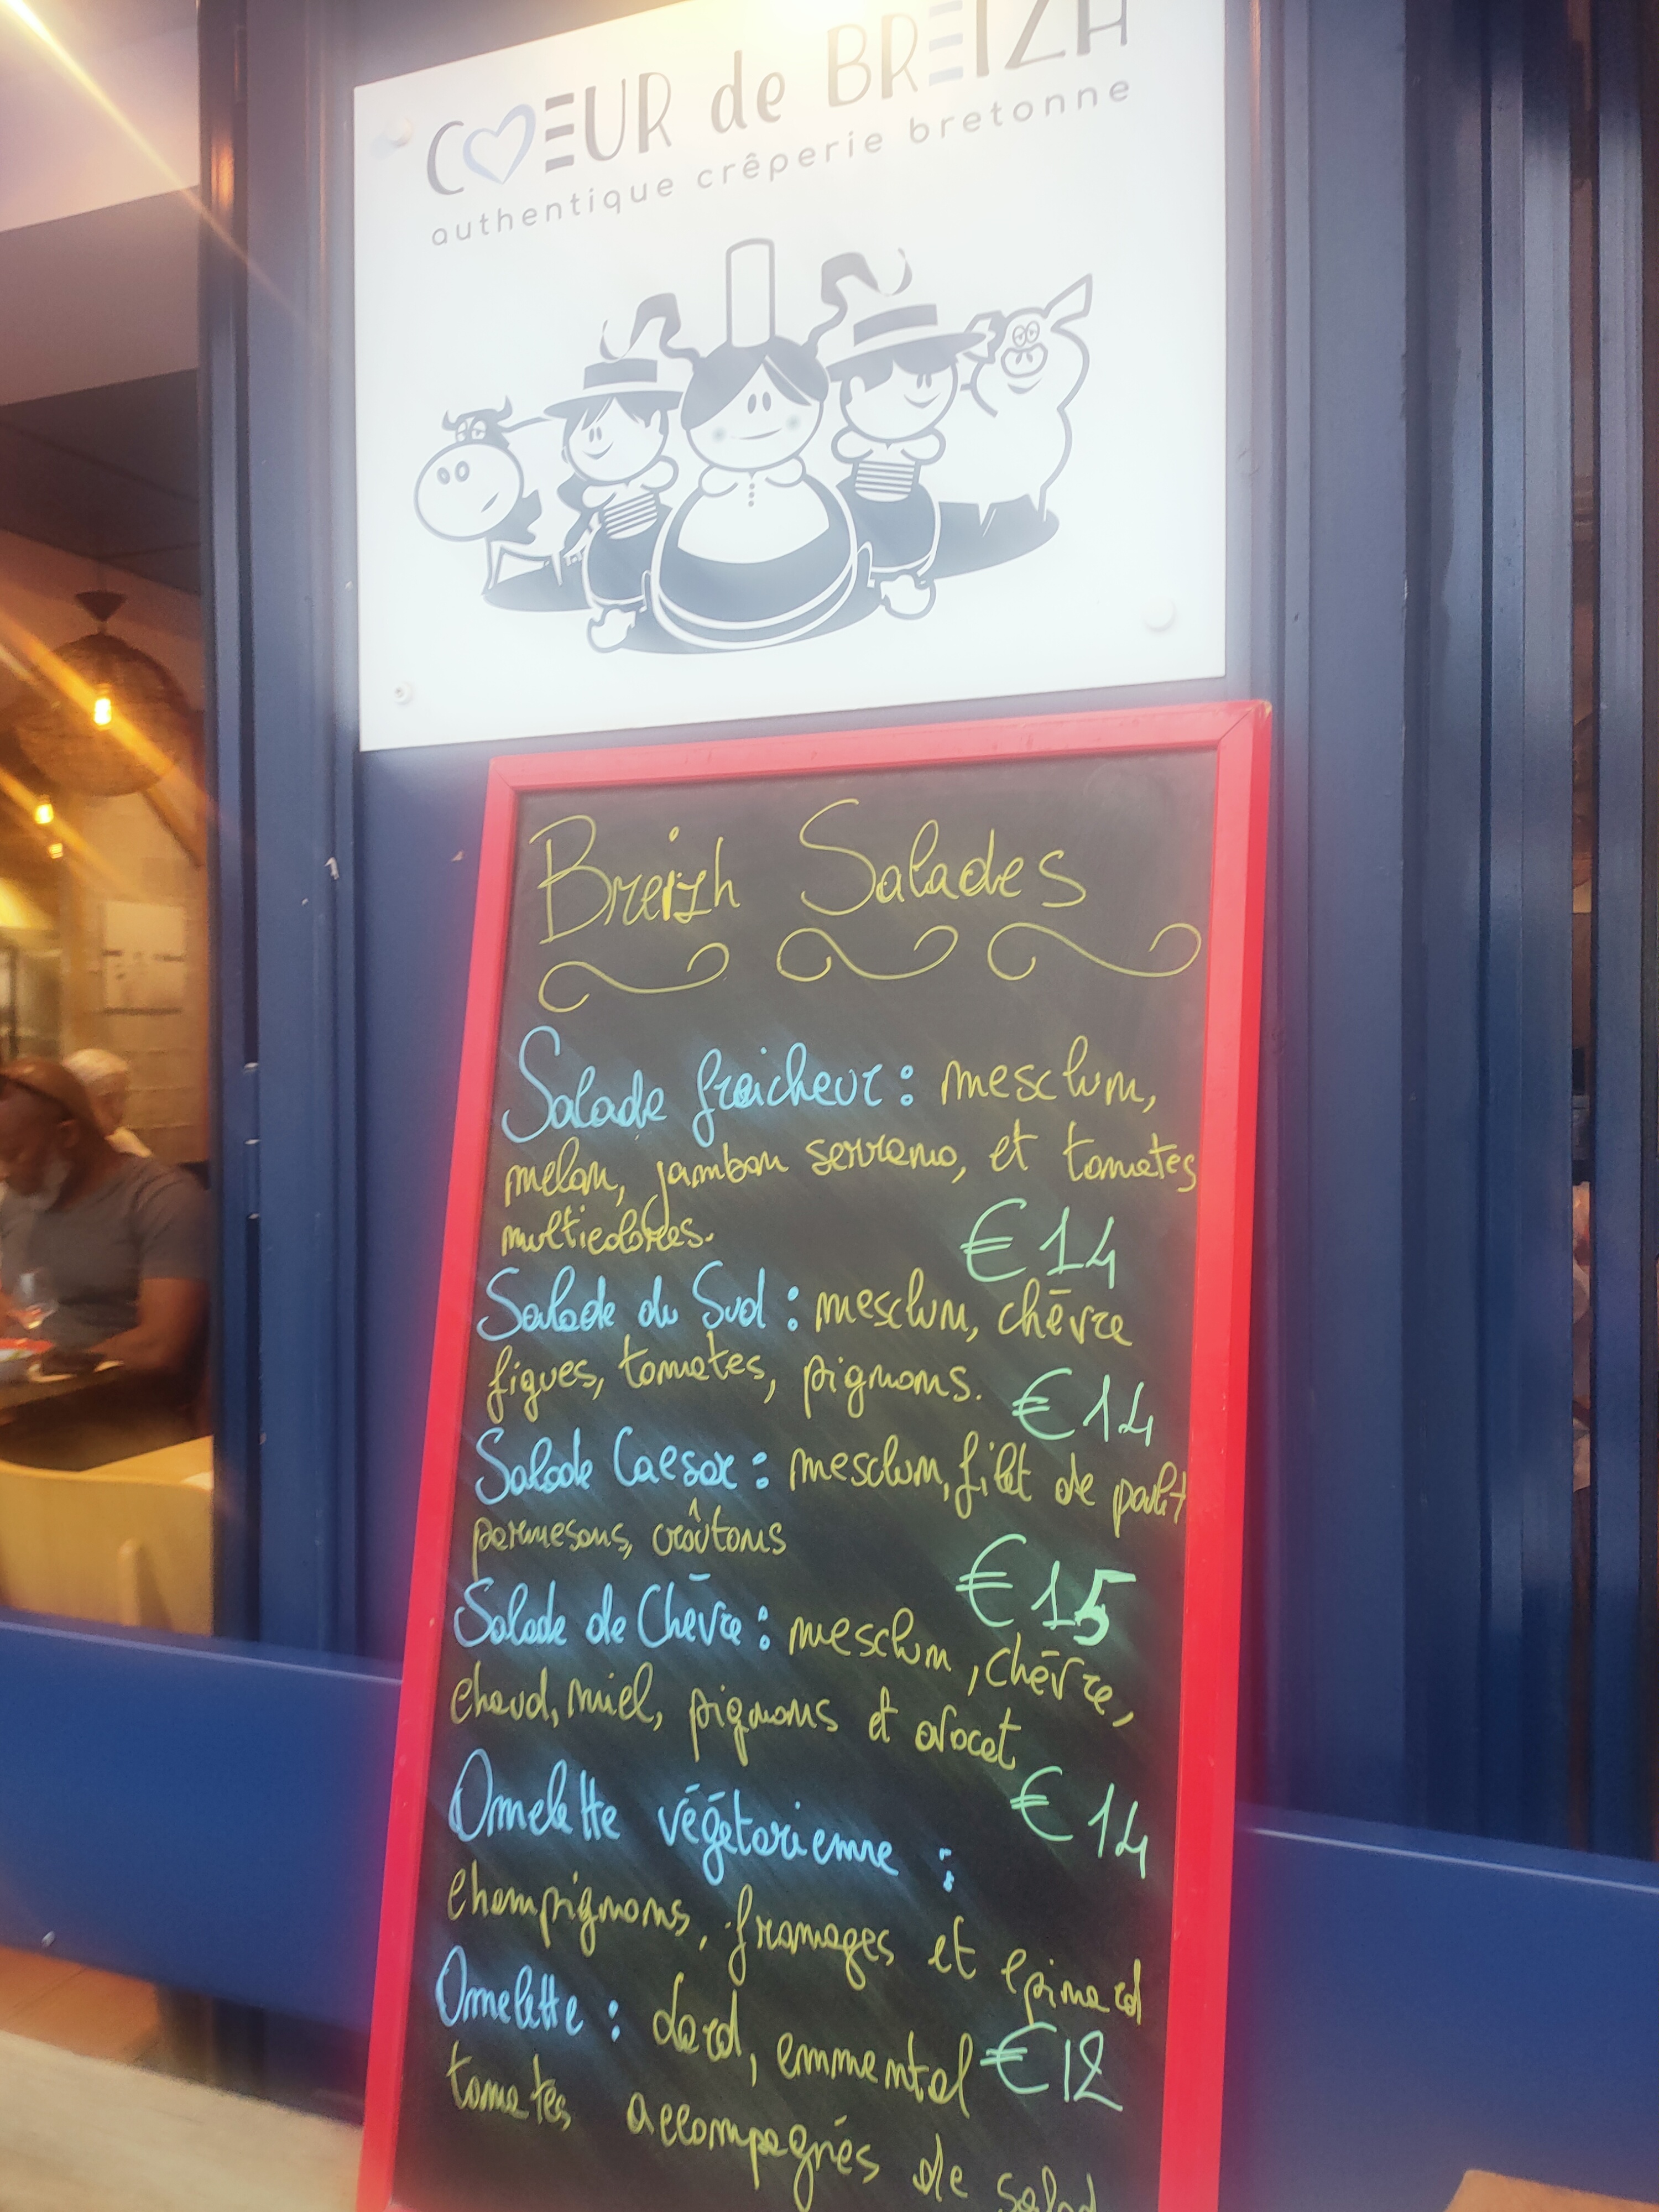 CŒUR de BREIZH
authentique crêperie bretonne
Breizh Salades
Salade fraicheur : mesclum,
melon, jambon serrano, et tomates
multicolores.
€14
Salade du Sud : mesclum, chèvre
figues, tomates, pignons.
€14
Salade Caesar : mesclum, filet de poulet
parmesans, croûtons
€15
Salade de Chèvre : mesclum, chèvre,
chaud, miel, pignons et avocat
€14
Omelette végétarienne :
champignons, fromages et epinard
€12
Omelette : lard, emmental
tomates accompagnés de salad